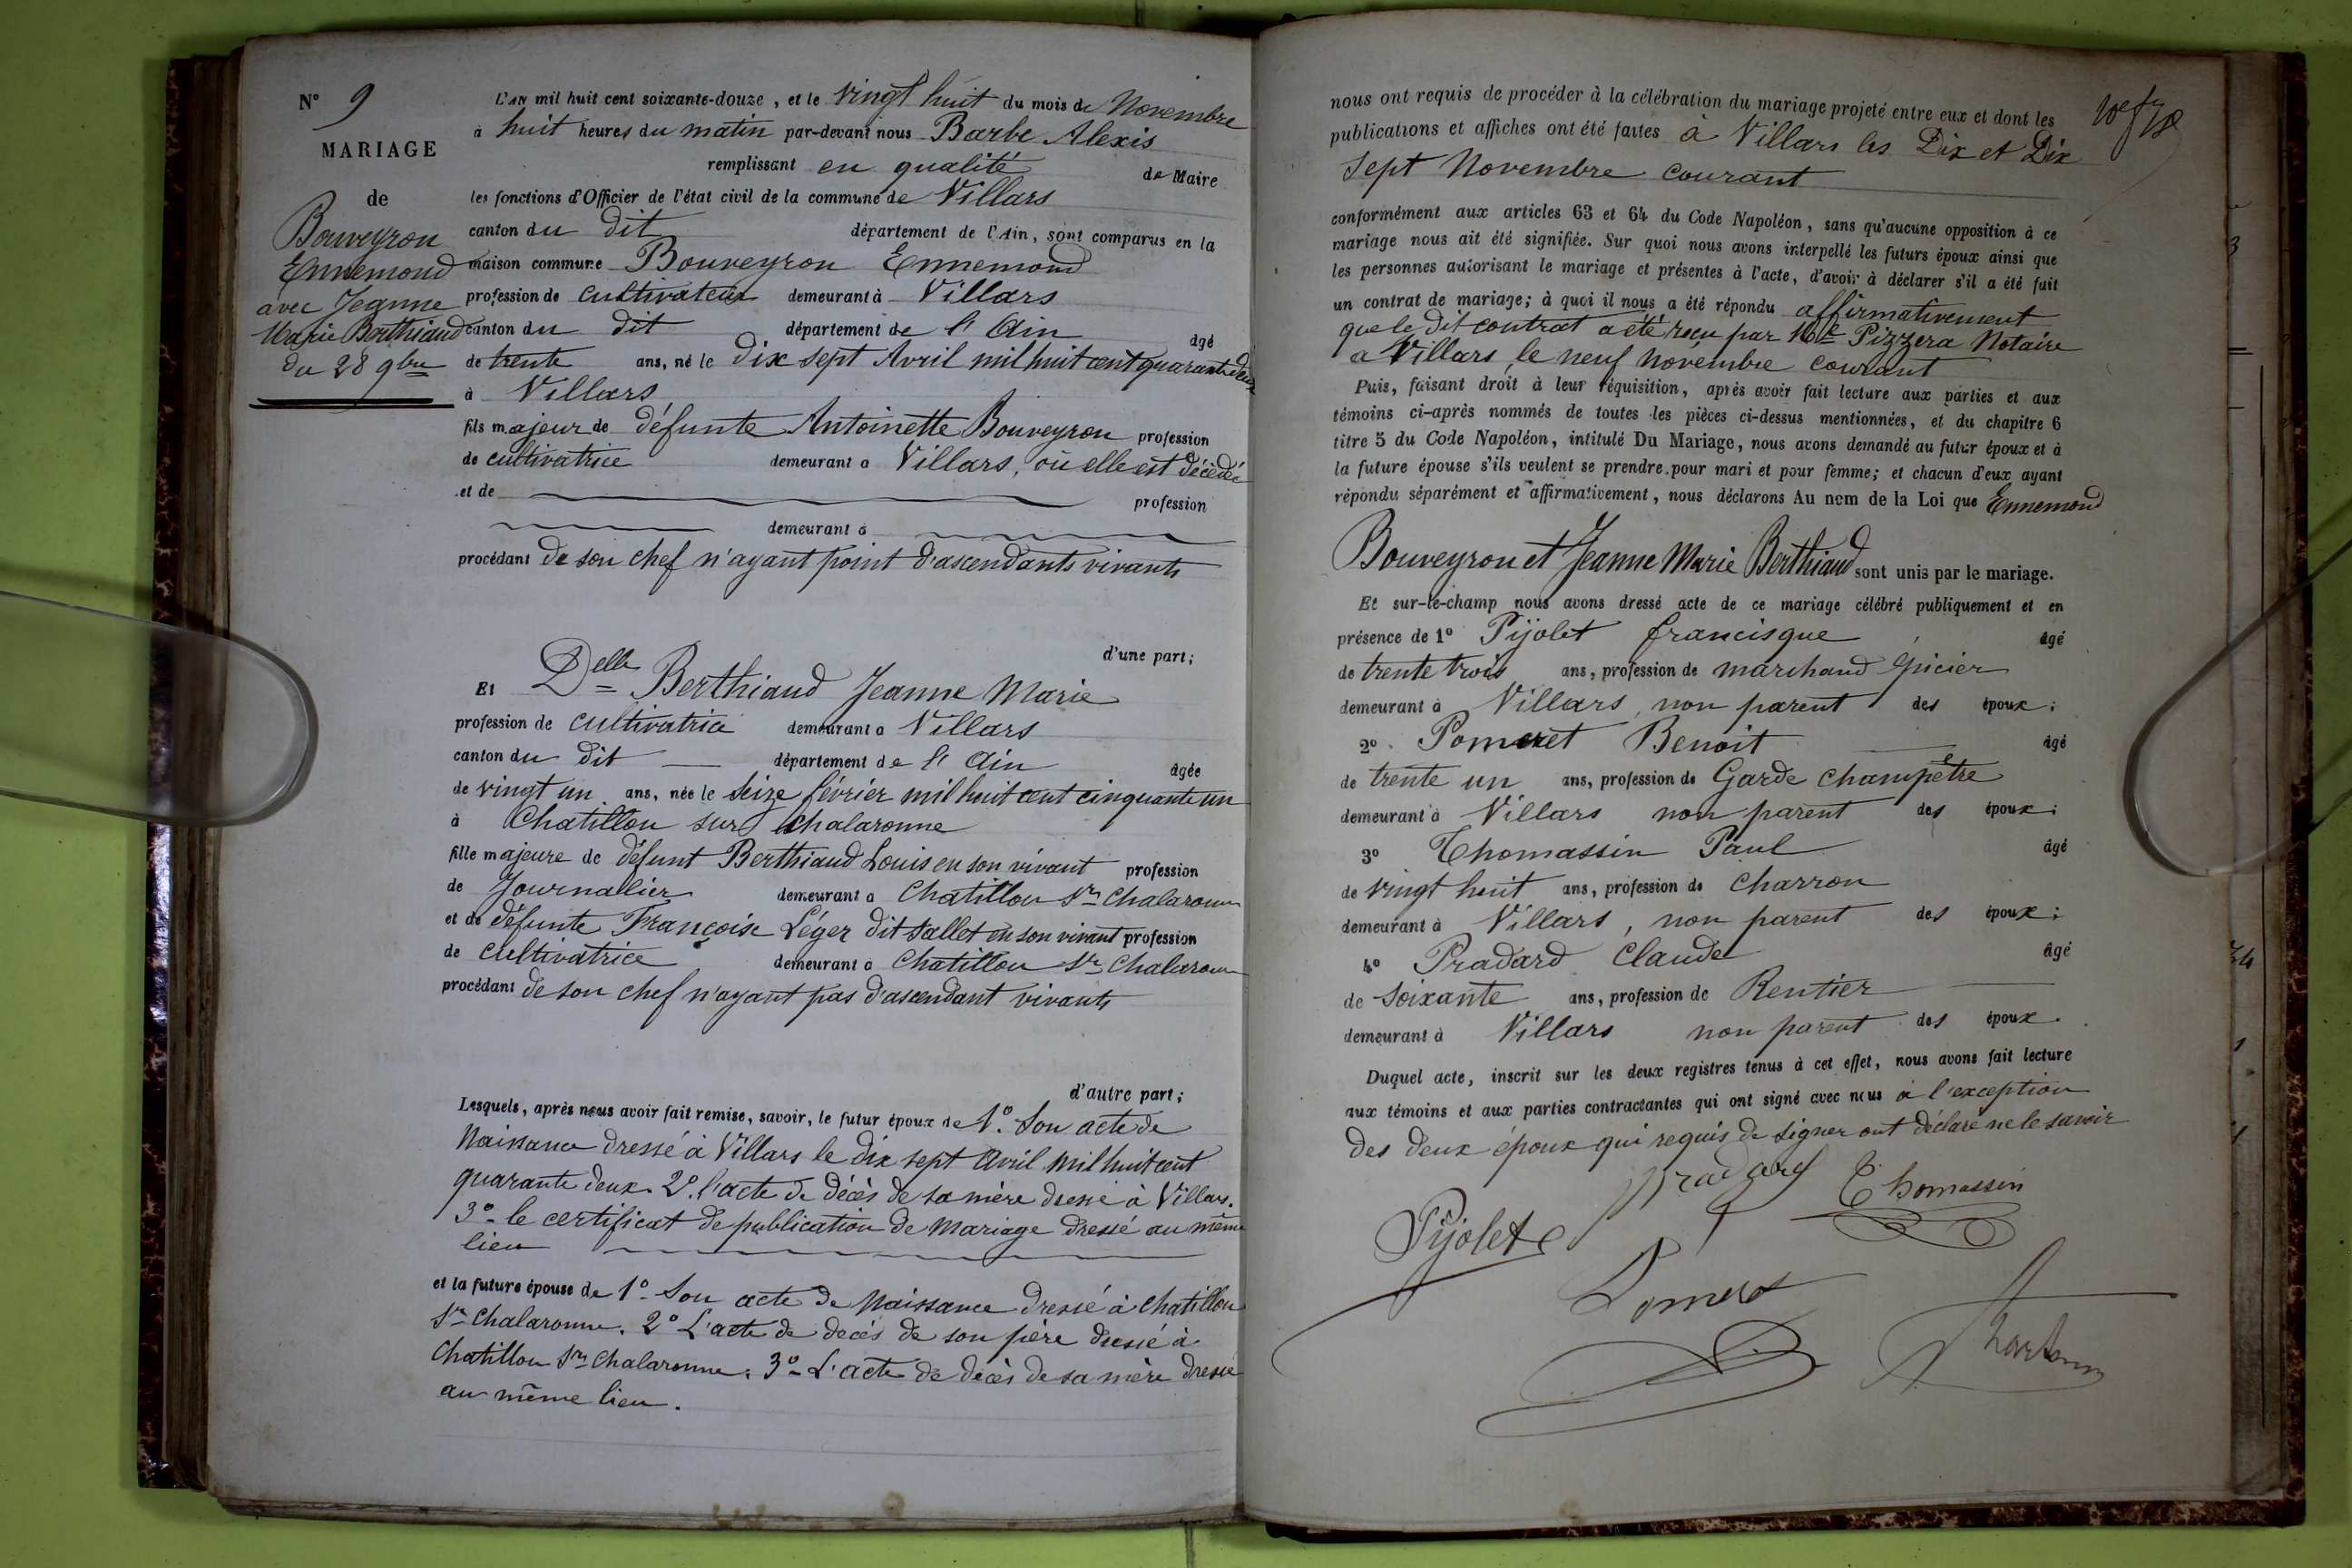 N° 9
MARIAGE
de
Bouveyron
Ennemond
avec Jeanne
Marie Berthiaud
du 28 9bre
L'AN mil huit cent soixante-douze, et le vingt huit du mois de Novembre
à huit heures du matin par-devant nous Barbe Alexis
remplissant en qualité de Maire
les fonctions d'Officier de l'état civil de la commune de Villars
canton du dit département de l'Ain, sont comparus en la
maison commune Bouveyron Ennemond
profession de cultivateur demeurant à Villars
canton du dit département de l'Ain âgé
de trente ans, né le dix sept Avril mil huit cent quarante deux
à Villars
fils majeur de défunte Antoinette Bouveyron profession
de cultivatrice demeurant à Villars, où elle est décédée
et de profession
demeurant à
procédant de son chef n'ayant point d'ascendants vivants
d'une part;
Et Delle Berthiaud Jeanne Marie
profession de cultivatrice demeurant à Villars
canton du dit département de l'Ain âgée
de vingt un ans, née le seize février mil huit cent cinquante un
à Chatillon sur Chalaronne
fille majeure de défunt Berthiaud Louis en son vivant profession
de Journalier demeurant à Chatillon sr Chalaronne
et de défunte Françoise Léger dit Sallet en son vivant profession
de cultivatrice demeurant à Chatillon sr Chalaronne
procédant de son chef n'ayant pas d'ascendant vivants
d'autre part;
Lesquels, après nous avoir fait remise, savoir, le futur époux de 1° Son acte de
Naissance dressé à Villars le dix sept Avril mil huit cent
quarante deux. 2° l'acte de décès de sa mère dressé à Villars.
3° le certificat de publication de Mariage dressé au même
lieu
et la future épouse de 1° Son acte de Naissance dressé à Chatillon
sr Chalaronne. 2° L'acte de decès de son père dressé à
Chatillon sr Chalaronne. 3° L'acte de décès de sa mère dressé
au même lieu.
nous ont requis de procéder à la célébration du mariage projeté entre eux et dont les
publications et affiches ont été faites à Villars les Dix et Dix
sept Novembre courant
conformément aux articles 63 et 64 du Code Napoléon, sans qu'aucune opposition à ce
mariage nous ait été signifiée. Sur quoi nous avons interpellé les futurs époux ainsi que
les personnes autorisant le mariage et présentes à l'acte, d'avoir à déclarer s'il a été fait
un contrat de mariage; à quoi il nous a été répondu affirmativement
que le dit contrat a été reçu par Me Pizzera Notaire
a Villars, le neuf novembre courant
Puis, faisant droit à leur réquisition, après avoir fait lecture aux parties et aux
témoins ci-après nommés de toutes les pièces ci-dessus mentionnées, et du chapitre 6
titre 5 du Code Napoléon, intitulé Du Mariage, nous avons demandé au futur époux et à
la future épouse s'ils veulent se prendre pour mari et pour femme; et chacun d'eux ayant
répondu séparément et affirmativement, nous déclarons Au nom de la Loi que Ennemond
Bouveyron et Jeanne Marie Berthiaud sont unis par le mariage.
Et sur-le-champ nous avons dressé acte de ce mariage célébré publiquement et en
présence de 1° Pijolet francisque âgé
de trente trois ans, profession de marchand Epicier
demeurant à Villars, non parent des époux;
2° Pomeret Benoit âgé
de trente un ans, profession de Garde champêtre
demeurant à Villars non parent des époux;
3° Thomassin Paul âgé
de vingt huit ans, profession de Charron
demeurant à Villars, non parent des époux;
4° Pradard Claude âgé
de soixante ans, profession de Rentier
demeurant à Villars non parent des époux.
Duquel acte, inscrit sur les deux registres tenus à cet effet, nous avons fait lecture
aux témoins et aux parties contractantes qui ont signé avec nous à l'exception
des deux époux qui requis de signer ont déclaré ne le savoir
Pradard Thomassin
Pijolet
Pomeret